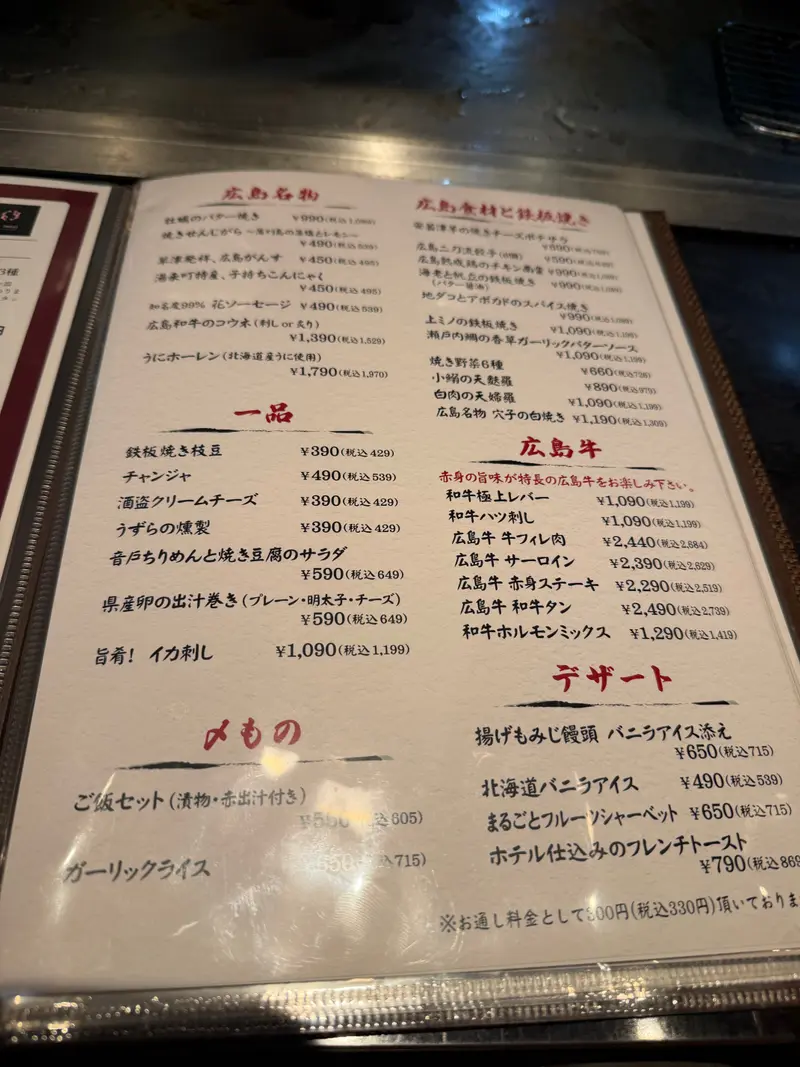 広島名物
牡蠣のバター焼き ¥990(税込1,089)
焼きせんじがら
¥490(税込539)
草津発祥、広島がんす ¥450(税込495)
湯来町特産、子持ちこんにゃく
¥450(税込495)
知名度99% 花ソーセージ ¥490(税込539)
広島和牛のコウネ(刺し or 炙り)
¥1,390(税込1,529)
うにホーレン(北海道産うに使用)
¥1,790(税込1,970)
一品
鉄板焼き枝豆 ¥390(税込429)
チャンジャ ¥490(税込539)
酒盗クリームチーズ ¥390(税込429)
うずらの燻製 ¥390(税込429)
音戸ちりめんと焼き豆腐のサラダ
¥590(税込649)
県産卵の出汁巻き(プレーン・明太子・チーズ)
¥590(税込649)
旨肴! イカ刺し ¥1,090(税込1,199)
〆もの
ご飯セット(漬物・赤出汁付き)
¥550(税込605)
ガーリックライス
¥650(税込715)
広島食材と鉄板焼き
安芸津芋の焼きチーズポテサラ
広島二刀流餃子
広島熟成鶏のチキン南蛮 ¥990
海老と帆立の鉄板焼き ¥990
(バター醤油)
地ダコとアボカドのスパイス焼き
¥990(税込1,089)
上ミノの鉄板焼き ¥1,090(税込1,199)
瀬戸内鯛の香草ガーリックバターソース
¥1,090(税込1,199)
焼き野菜6種 ¥660(税込726)
小鰯の天麩羅 ¥890(税込979)
白肉の天婦羅 ¥1,090(税込1,199)
広島名物 穴子の白焼き ¥1,190(税込1,309)
広島牛
赤身の旨味が特長の広島牛をお楽しみ下さい。
和牛極上レバー ¥1,090(税込1,199)
和牛ハツ刺し ¥1,090(税込1,199)
広島牛 牛フィレ肉 ¥2,440(税込2,684)
広島牛 サーロイン ¥2,390(税込2,629)
広島牛 赤身ステーキ ¥2,290(税込2,519)
広島牛 和牛タン ¥2,490(税込2,739)
和牛ホルモンミックス ¥1,290(税込1,419)
デザート
揚げもみじ饅頭 バニラアイス添え
¥650(税込715)
北海道バニラアイス ¥490(税込539)
まるごとフルーツシャーベット ¥650(税込715)
ホテル仕込みのフレンチトースト
¥790(税込869
※お通し料金として300円(税込330円)頂いておりま